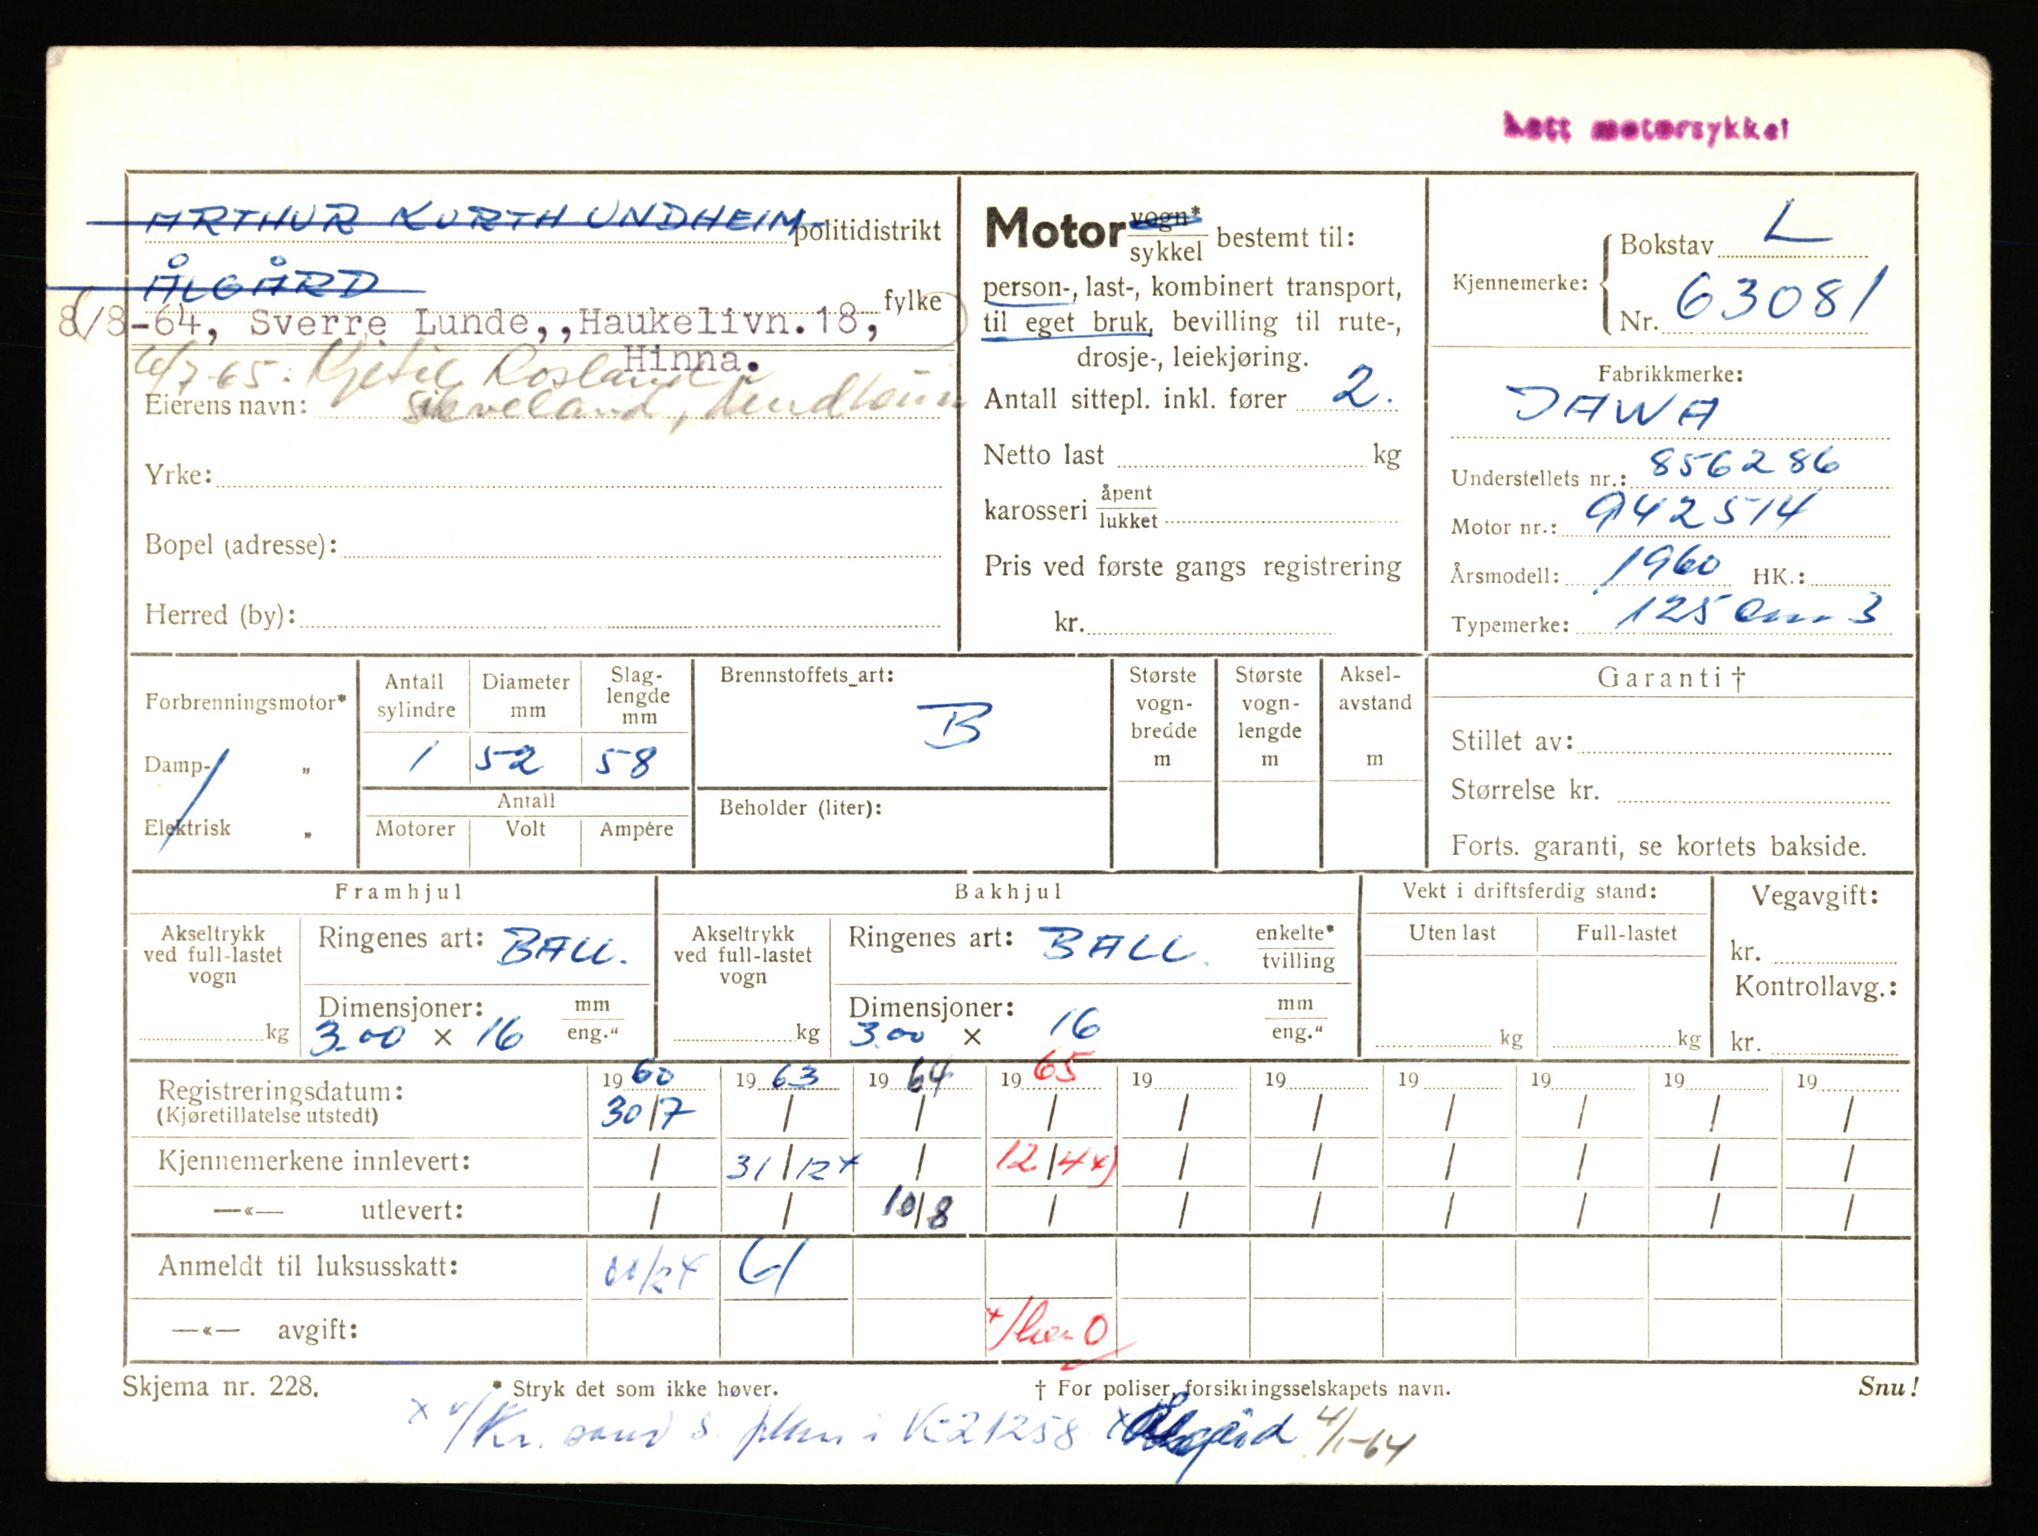 Lett motorsykkel
ARTHUR KURTH UNDHEIM politidistrikt
ÅLGÅRD fylke
8/8-64, Sverre Lunde,,Haukelivn.18,
Hinna.
6/7-65. Kjetil Rosland
Eierens navn:
Yrke:
Bopel (adresse):
Herred (by):
Motor vogn*/sykkel bestemt til:
person-, last-, kombinert transport,
til eget bruk, bevilling til rute-,
drosje-, leiekjøring.
Antall sittepl. inkl. fører 2.
Netto last kg
karosseri åpent/lukket
Pris ved første gangs registrering
kr.
Kjennemerke: Bokstav L
Nr. 63081
Fabrikkmerke:
JAWA
Understellets nr.: 856286
Motor nr.: 942514
Årsmodell: 1960 HK.:
Typemerke: 125 cm 3
Forbrenningsmotor*
Damp- „
Elektrisk „
Antall sylindre Diameter mm Slag-lengde mm
1 52 58
Antall
Motorer Volt Ampére
Brennstoffets art:
B
Beholder (liter):
Største vogn-bredde m
Største vogn-lengde m
Aksel-avstand m
Garanti †
Stillet av:
Størrelse kr.
Forts. garanti, se kortets bakside.
Framhjul
Akseltrykk ved full-lastet vogn kg
Ringenes art: BALL.
Dimensjoner: mm/eng."
3.00 × 16
Bakhjul
Akseltrykk ved full-lastet vogn kg
Ringenes art: BALL. enkelte*/tvilling
Dimensjoner: mm/eng."
3.00 × 16
Vekt i driftsferdig stand:
Uten last Full-lastet
kg kg
Vegavgift:
kr.
Kontrollavg.:
kr.
Registreringsdatum: 1960 1963 1964 1965 19 19 19 19 19 19
(Kjøretillatelse utstedt) 30/7 / / / / / / / / /
Kjennemerkene innlevert: / 31/12 x / 12/4 x) / / / / / /
—«— utlevert: / / 10/8 / / / / / / /
Anmeldt til luksusskatt:
—«— avgift:
Skjema nr. 228. * Stryk det som ikke høver. † For poliser, forsikringsselskapets navn. Snu!
4/1-64